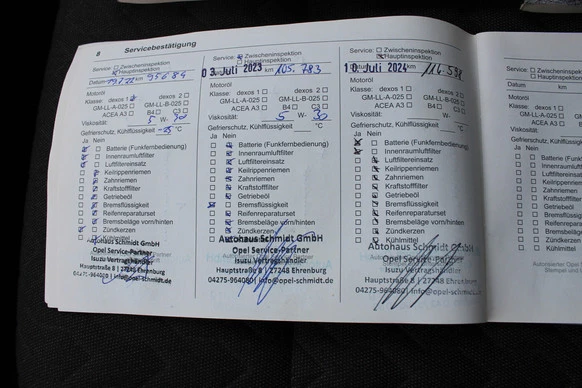 8 Servicebestätigung
Service: Zwischeninspektion
Hauptinspektion
Datum km 95684
Motoröl
Klasse: dexos 1 dexos 2
GM-LL-A-025 GM-LL-B-025
ACEA A3 B4 C3
Viskosität 5 W- 30
Gefrierschutz, Kühlflüssigkeit °C
Ja Nein
Batterie (Funkfernbedienung)
Innenraumluftfilter
Luftfiltereinsatz
Keilrippenriemen
Zahnriemen
Kraftstofffilter
Getriebeöl
Bremsflüssigkeit
Reifenreparaturset
Bremsbeläge vorn/hinten
Zündkerzen
Kühlmittel
Autohaus Schmidt GmbH
Opel Service-Partner
Isuzu Vertragshändler
Hauptstraße 8 | 27248 Ehrenburg
04275-964080 | info@opel-schmidt.de
Service: Zwischeninspektion
Hauptinspektion
0 3. Juli 2023 km 105.783
Motoröl
Klasse: dexos 1 dexos 2
GM-LL-A-025 GM-LL-B-025
ACEA A3 B4 C3
Viskosität 5 W- 30
Gefrierschutz, Kühlflüssigkeit °C
Ja Nein
Batterie (Funkfernbedienung)
Innenraumluftfilter
Luftfiltereinsatz
Keilrippenriemen
Zahnriemen
Kraftstofffilter
Getriebeöl
Bremsflüssigkeit
Reifenreparaturset
Bremsbeläge vorn/hinten
Zündkerzen
Autohaus Schmidt GmbH
Opel Service-Partner
Isuzu Vertragshändler
Hauptstraße 8 | 27248 Ehrenburg
04275-964080 | info@opel-schmidt.de
Service: Zwischeninspektion
Hauptinspektion
Juli 2024
Motoröl
Klasse: dexos 1 dexos 2
GM-LL-A-025 GM-LL-B-025
ACEA A3 B4 C3
Viskosität W-
Gefrierschutz, Kühlflüssigkeit °C
Ja Nein
Batterie (Funkfernbedienung)
Innenraumluftfilter
Luftfiltereinsatz
Keilrippenriemen
Zahnriemen
Kraftstofffilter
Getriebeöl
Bremsflüssigkeit
Reifenreparaturset
Bremsbeläge vorn/hinten
Zündkerzen
Kühlmittel
Autohaus Schmidt GmbH
Opel Service-Partner
Isuzu Vertragshändler
Hauptstraße 8 | 27248 Ehrenburg
04275-964080 | info@opel-schmidt.de
Service:
Datum
Motoröl
Klasse: dexos
GM-LL-A
ACEA
Viskosität
Gefrierschutz, Kühl
Ja Nein
Batterie
Innenraum
Luftfilter
Keilrippen
Zahnriemen
Kraftstoff
Getriebe
Bremsflüssig
Reifenrep
Bremsbeläge
Zündkerzen
Kühlmittel